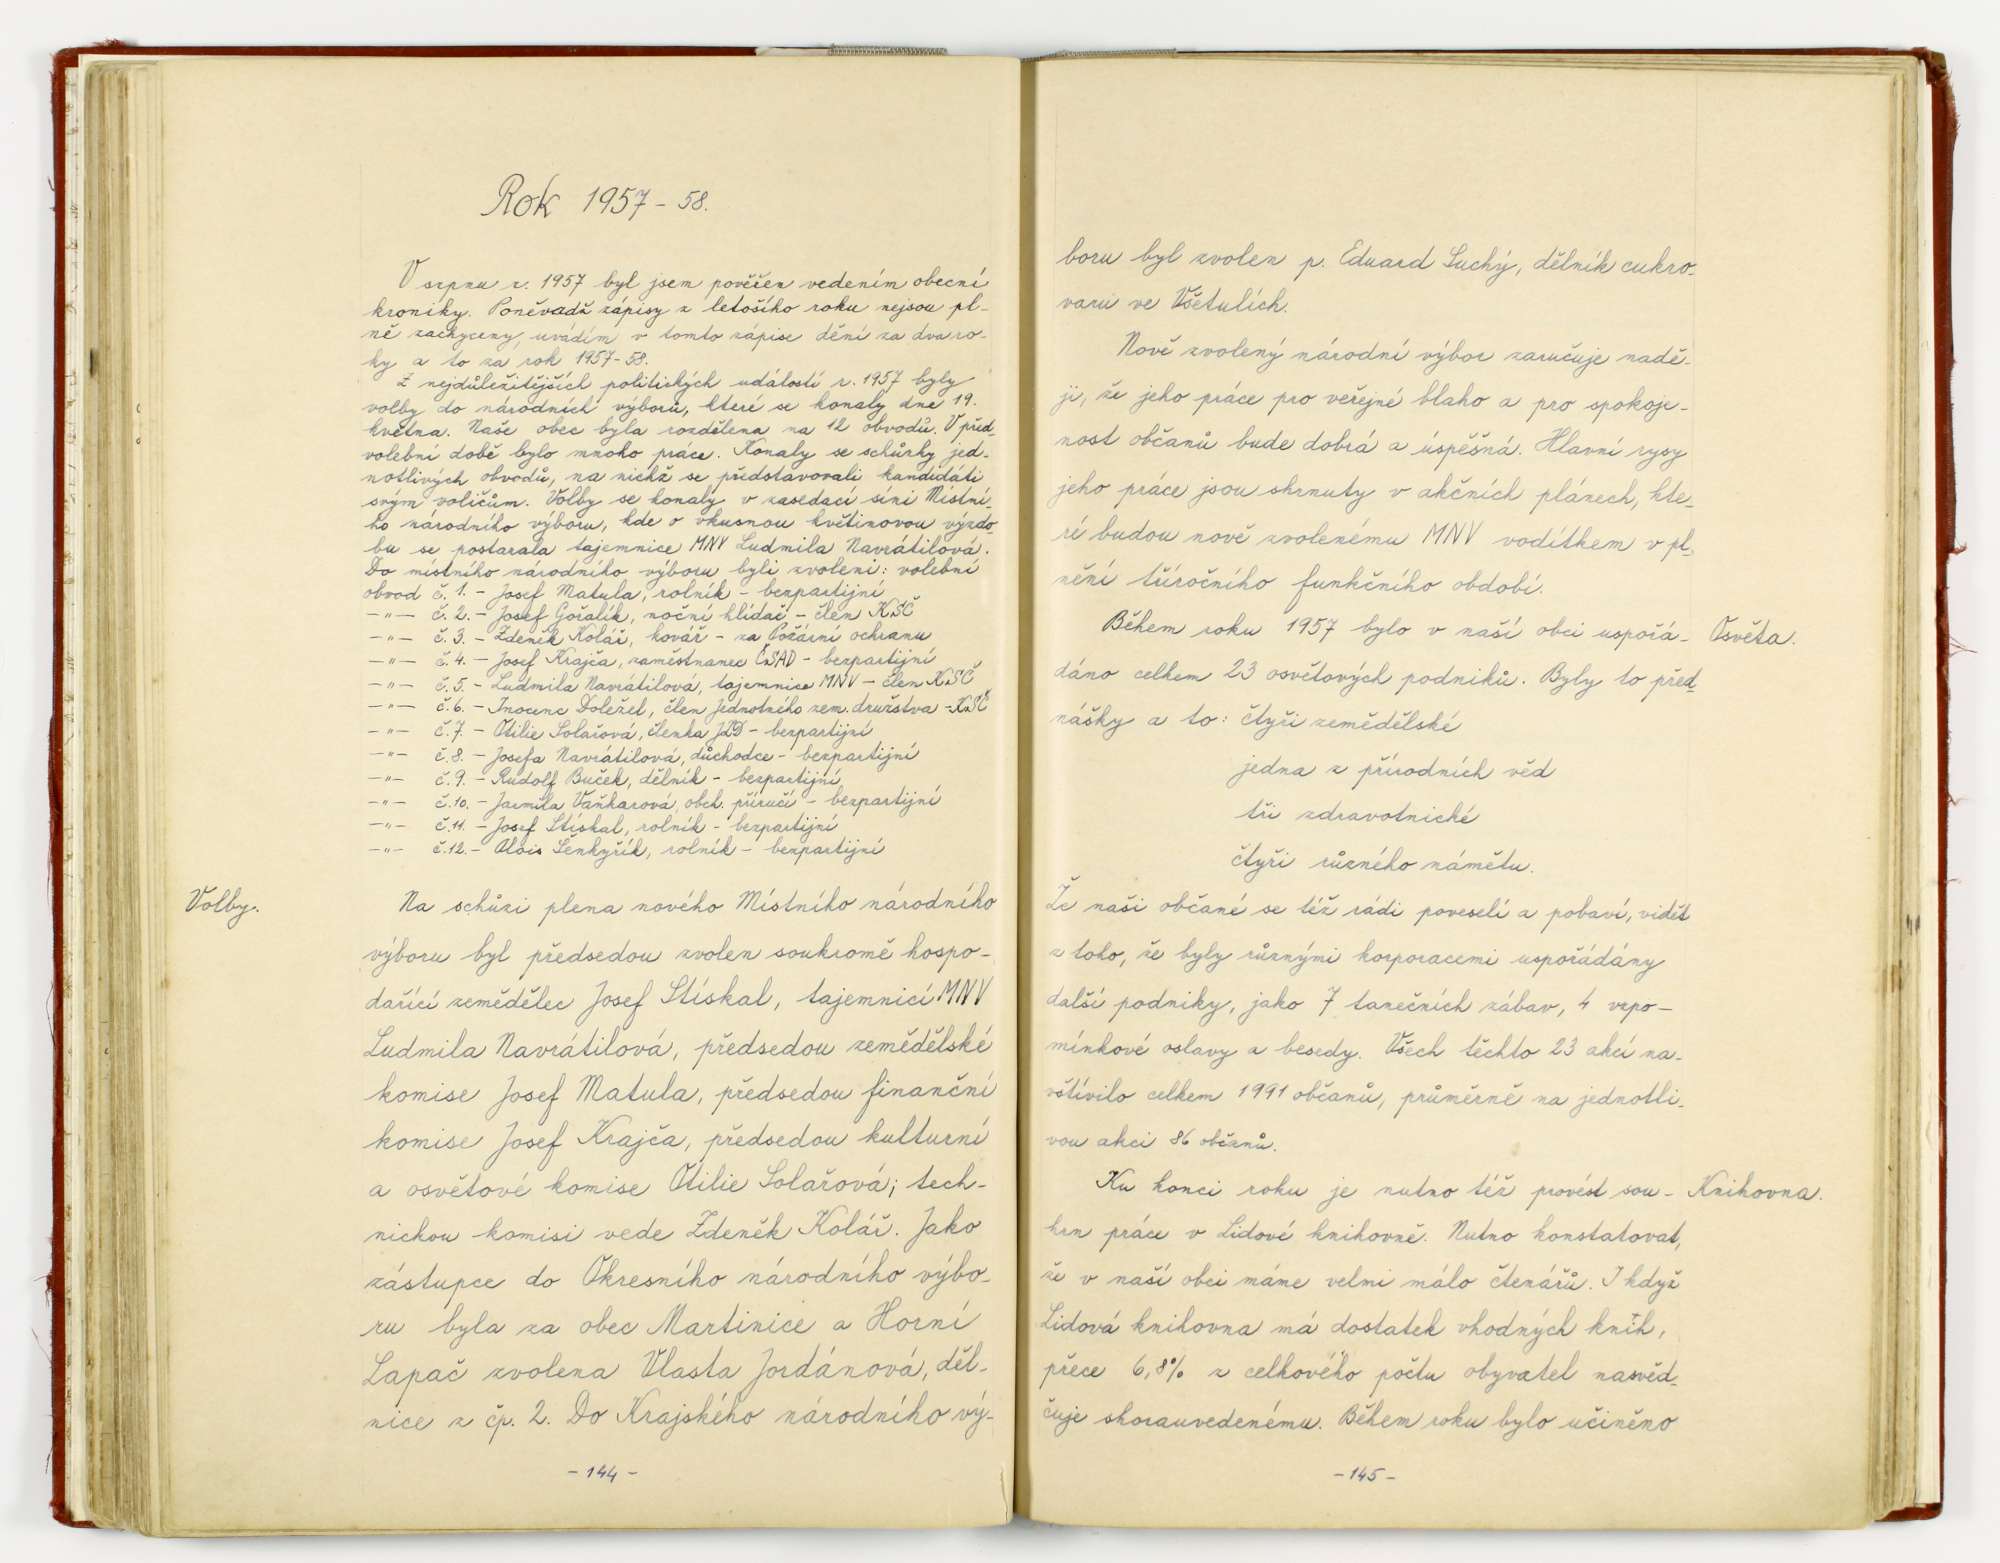 Rok 1957 - 58.
V srpnu r. 1957 byl jsem pověřen vedením obecní
kroniky. Poněvadž zápisy z letošího roku nejsou pl-
ně zachyceny, uvádím v tomto zápise dění za dva ro-
ky a to za rok 1957-58.
Z nejdůležitějších politických událostí r. 1957 byly
volby do národních výborů, které se konaly dne 19.
května. Naše obec byla rozdělena na 12 obvodů. V před-
volební době bylo mnoho práce. Konaly se schůzky jed-
notlivých obvodů, na nichž se představovali kandidáti
svým voličům. Volby se konaly v zasedací síni Místní-
ho národního výboru, kde o vkusnou květinovou výzdo-
bu se postarala tajemnice MNV Ludmila Navrátilová.
Do místního národního výboru byli zvoleni: volební
obvod č. 1. - Josef Matula, rolník - bezpartijní
-"- č. 2. - Josef Gořalík, noční hlídač - člen KSČ
-"- č. 3. - Zdeněk Kolář, kovář - za Požární ochranu
-"- č. 4. - Josef Krajča, zaměstnanec ČSAD - bezpartijní
-"- č. 5. - Ludmila Navrátilová, tajemnice MNV - člen KSČ
-"- č. 6. - Inocenc Doležel, člen Jednotného zem. družstva - KSČ
-"- č. 7. - Otilie Solařová, členka JZD - bezpartijní
-"- č. 8. - Josefa Navrátilová, důchodce - bezpartijní
-"- č. 9. - Rudolf Buček, dělník - bezpartijní
-"- č. 10. - Jarmila Vaňharová, obch. příručí - bezpartijní
-"- č. 11. - Josef Stískal, rolník - bezpartijní
-"- č. 12. - Alois Šenkyřík, rolník - bezpartijní
Volby. Na schůzi plena nového Místního národního
výboru byl předsedou zvolen soukromě hospo-
dařící zemědělec Josef Stískal, tajemnicí MNV
Ludmila Navrátilová, předsedou zemědělské
komise Josef Matula, předsedou finanční
komise Josef Krajča, předsedou kulturní
a osvětové komise Otilie Solařová; tech-
nickou komisi vede Zdeněk Kolář. Jako
zástupce do Okresního národního výbo-
ru byla za obec Martinice a Horní
Lapač zvolena Vlasta Jordánová, děl-
nice z čp. 2. Do Krajského národního vý-
- 144 -
boru byl zvolen p. Eduard Suchý, dělník cukro-
varu ve Všetulích.
Nově zvolený národní výbor zaručuje nadě-
ji, že jeho práce pro veřejné blaho a pro spokoje-
nost občanů bude dobrá a úspěšná. Hlavní rysy
jeho práce jsou shrnuty v akčních plánech, kte-
ré budou nově zvolenému MNV vodítkem v pl-
nění tříročního funkčního období.
Během roku 1957 bylo v naší obci uspořá- Osvěta.
dáno celkem 23 osvětových podniků. Byly to před-
nášky a to: čtyři zemědělské
jedna z přírodních věd
tři zdravotnické
čtyři různého námětu.
Že naši občané se též rádi poveselí a pobaví, vidět
z toho, že byly různými korporacemi uspořádány
další podniky, jako 7 tanečních zábav, 4 vzpo-
mínkové oslavy a besedy. Všech těchto 23 akcí na-
vštívilo celkem 1991 občanů, průměrně na jednotli-
vou akci 86 občanů.
Ku konci roku je nutno též provést sou- Knihovna.
hrn práce v Lidové knihovně. Nutno konstatovat,
že v naší obci máme velmi málo čtenářů. I když
Lidová knihovna má dostatek vhodných knih,
přece 6,8% z celkového počtu obyvatel nasvěd-
čuje shorauvedenému. Během roku bylo učiněno
- 145 -